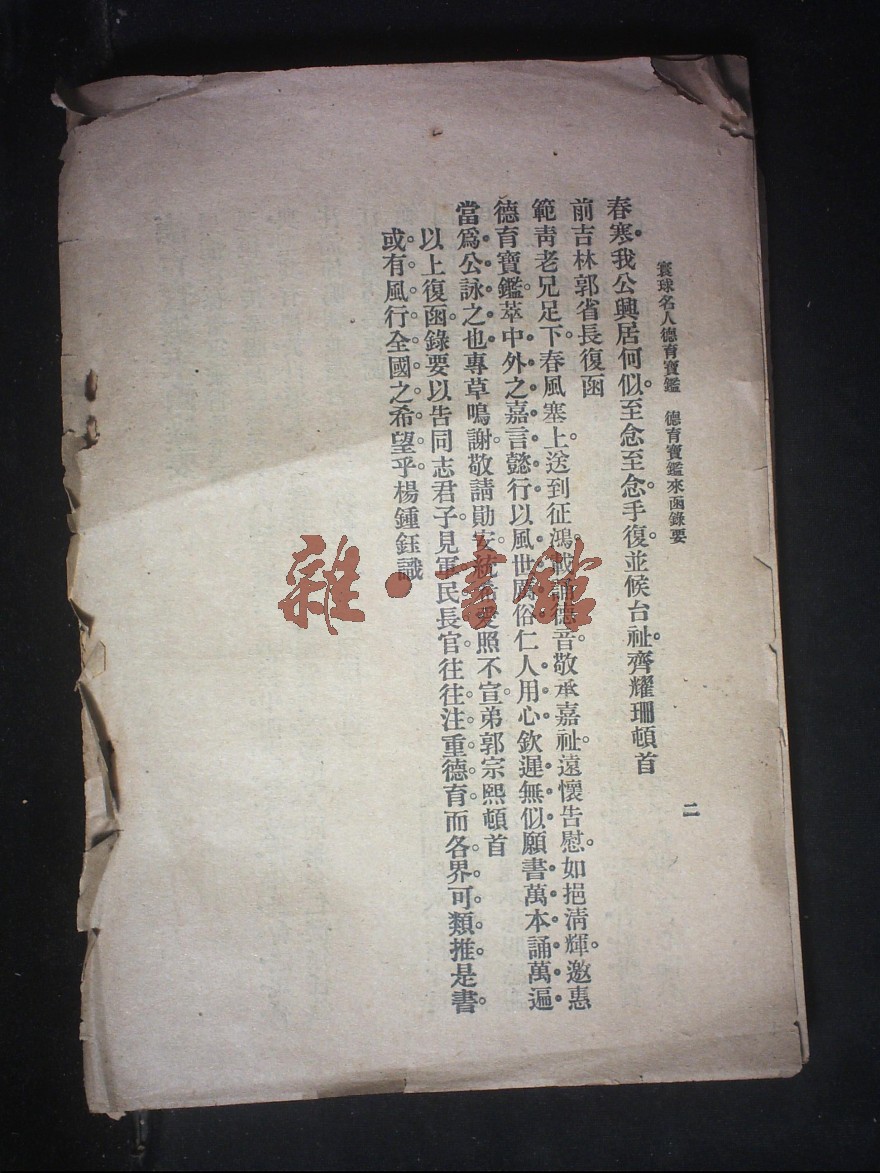 寰球名人德育寶鑑 德育寶鑑來函錄要
二
春寒。我公興居何似。至念至念。手復。並候台祉。齊耀珊頓首
前吉林郭省長復函
範靑老兄足下。春風塞上。送到征鴻。載誦德音。敬承嘉祉。遠懷告慰。如挹淸輝。邀惠
德育寶鑑。萃中外之嘉言懿行。以風世厲俗。仁人用心。欽遲無似。願書萬本誦萬遍
當爲公詠之也。專草鳴謝。敬請勛安。統希愛照不宣。弟郭宗熙頓首
以上復函錄要。以告同志君子。見軍民長官。往往注重德育。而各界可類推。是書
或有風行全國之希望乎。楊鍾鈺識
雜·書館